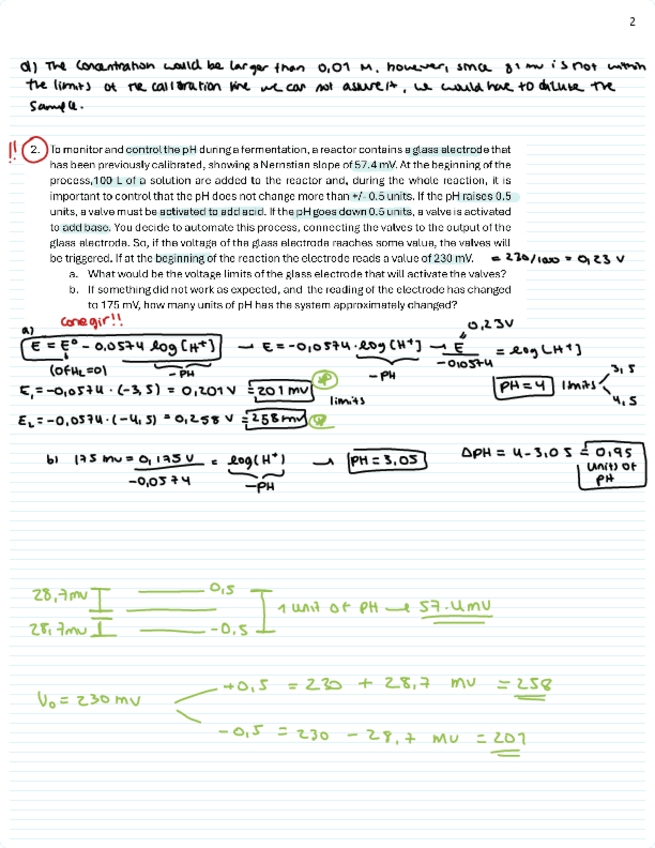 2
d) The concentration would be larger than 0,01 M, however, since 81 mv is not within
the limits of the calibration line we can not assure it, we would have to diluse the
sample.
!! 2. To monitor and control the pH during a fermentation, a reactor contains a glass electrode that
has been previously calibrated, showing a Nernstian slope of 57.4 mV. At the beginning of the
process, 100 L of a solution are added to the reactor and, during the whole reaction, it is
important to control that the pH does not change more than +/- 0.5 units. If the pH raises 0.5
units, a valve must be activated to add acid. If the pH goes down 0.5 units, a valve is activated
to add base. You decide to automate this process, connecting the valves to the output of the
glass electrode. So, if the voltage of the glass electrode reaches some value, the valves will
be triggered. If at the beginning of the reaction the electrode reads a value of 230 mV. = 230/1000 = 0,23 V
a. What would be the voltage limits of the glass electrode that will activate the valves?
b. If something did not work as expected, and the reading of the electrode has changed
to 175 mV, how many units of pH has the system approximately changed?
a) corregir!! 0,23V
E = E° - 0,0574 log [H+] → E = -0,0574 · log [H+] → E / -0,0574 = log [H+]
-PH -PH PH = 4 limits 3,5
4,5
E₁ = -0,0574 · (-3,5) = 0,201 V = 201 mV
limits
E₂ = -0,0574 · (-4,5) = 0,258 V = 258 mV
b) 175 mv = 0,175 V / -0,0574 = log (H+) → PH = 3,05 ΔPH = 4 - 3,05 = 0,95
-PH units of
PH
28,7mv 0,5
1 unit of PH → 57.4mv
28,7mv -0,5
+0,5 = 230 + 28,7 mv = 258
V₀ = 230 mv
-0,5 = 230 - 28,7 mv = 201